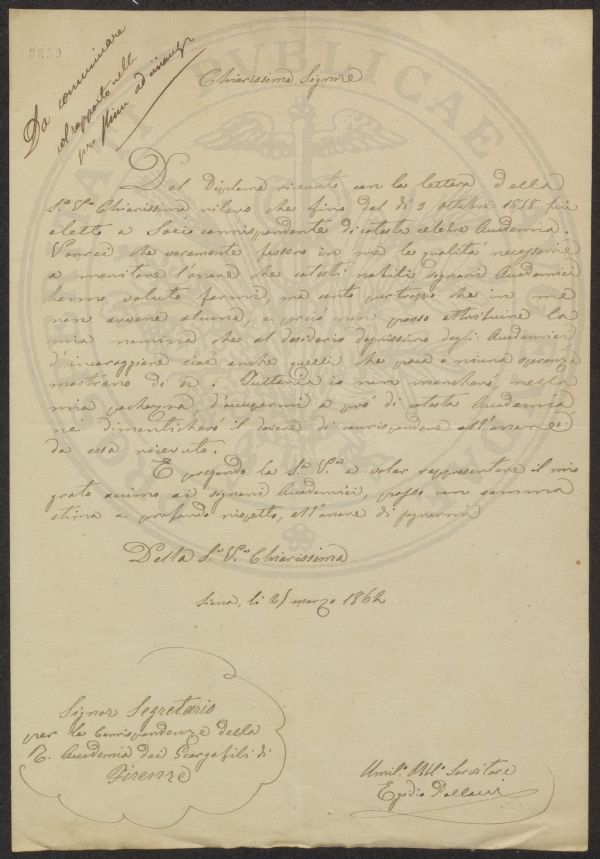 Da comunicare
col rapporto nella
Chiarissimo Signore
Dal Diploma ricevuto con la lettera della
S.a V.a Chiarissima rilevo che fino dal dì 3 ottobre 1858 fui
eletto a Socio corrispondente di cotesta celebre Accademia.
Vorrei che veramente fossero in me le qualità necessarie
a meritare l'onore che cotesti nobili signori Accademici
hanno voluto farmi, ma sento purtroppo che in me
non avvene alcuna, e perciò non posso attribuire la
mia nomina che al desiderio degnissimo degli Accademici
d'incoraggiare cioè anche quelli che poca o niuna speranza
mostrano di se. Tuttavia io non mancherò, nella
mia pochezza, d'occuparmi a prò di cotesta Accademia
nè dimenticherò il dovere di corrispondere all'onore
da essa ricevuto.
E pregando la S.a V.a a voler rappresentare il mio
grato animo ai signori Accademici, passo con somma
stima e profondo rispetto, all'onore di segnarmi
Della S.a V.a Chiarissima
Siena, li 21 marzo 1862
Signor Segretario
per le Corrispondenze della
R. Accademia dei Georgofili di
Firenze
Umil.o Obbl.o Servitore
Egidio Pollacci